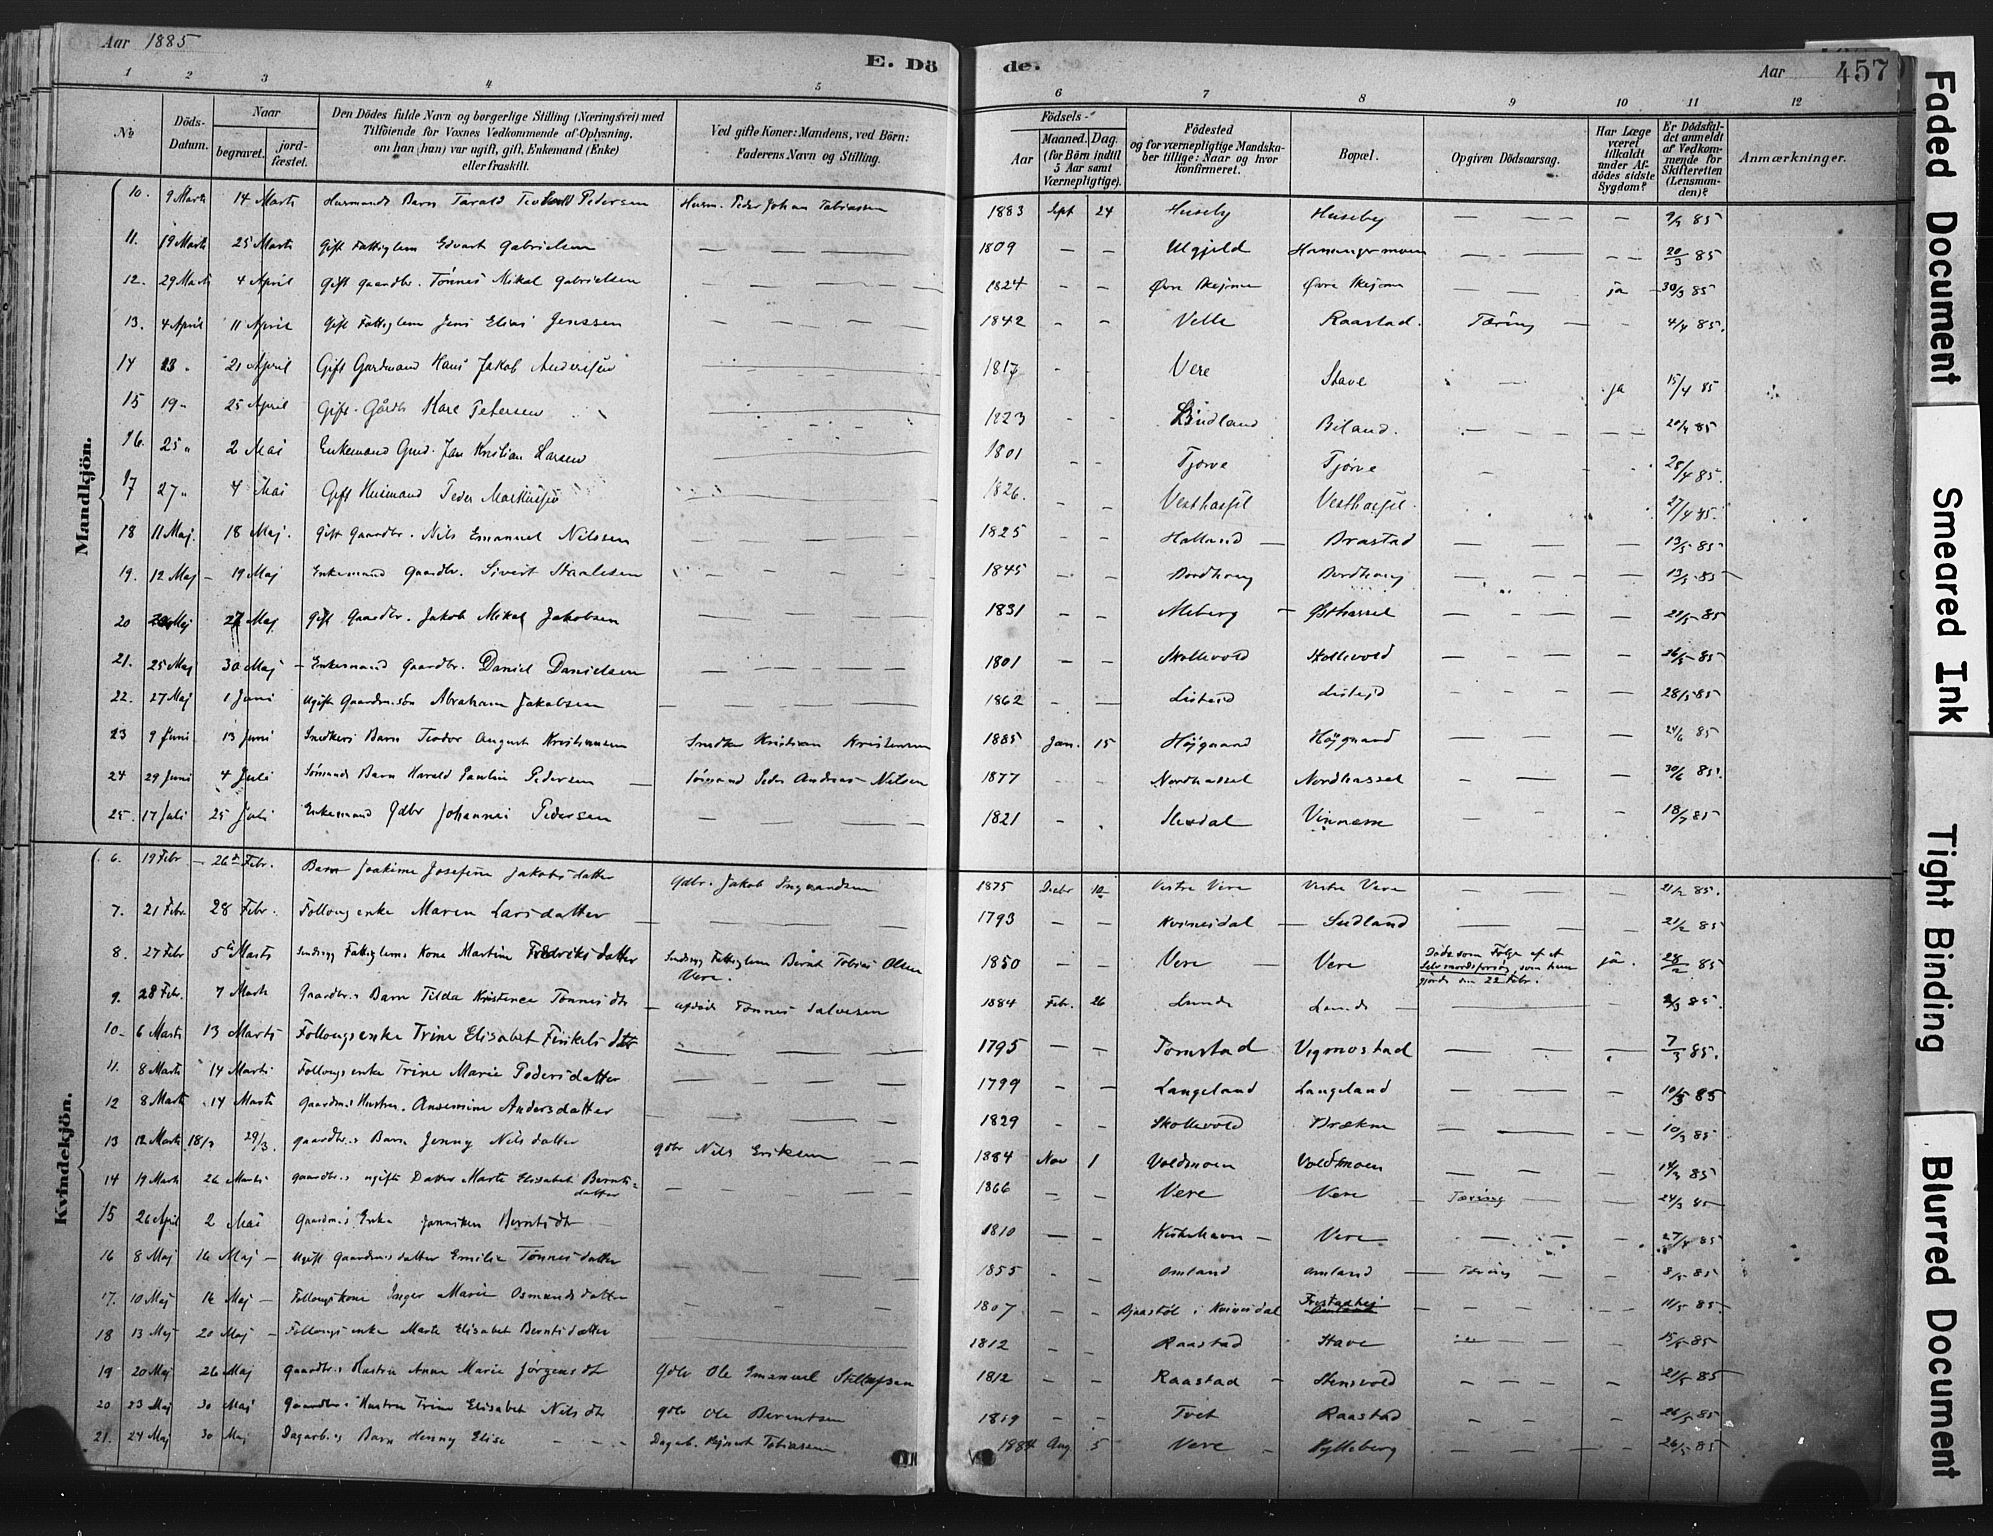 Aar 1885
E. Dö
de.
Aar
457
1 2 3 4 5 6 7 8 9 10 11 12
No
Döds-
Datum.
Naar
begravet.
jord-
fæstet.
Den Dödes fulde Navn og borgerlige Stilling (Næringsvei) med
Tilföiende for Voxnes Vedkommende af Oplysning,
om han (hun) var ugift, gift, Enkemand (Enke)
eller fraskilt.
Ved gifte Koner: Mandens, ved Börn:
Faderens Navn og Stilling.
Födsels-
Aar
Maaned.
Dag.
(for Börn indtil
5 Aar samt
Værnepligtige).
Födested
og for værnepligtige Mandska-
ber tillige: Naar og hvor
konfirmeret.
Bopæl.
Opgiven Dödsaarsag.
Har Læge
været
tilkaldt
under Af-
dödes sidste
Sygdom?
Er Dödsfal-
det anmeldt
af Vedkom-
mende for
Skifteretten
(Lensman-
den)?
Anmærkninger.
Mandkjön.
10. 9 Marts 14 Marts Husmands Barn Tarald Pedersen Husm. Peder Johan Tobiassen 1883 Sept 24 Huseby Huseby — — — 9/3 85
11. 19 Marts 25 Marts Gift Fattiglem Edvart Gabrielsen — — 1809 — — Ulgjeld — — — 20/3 85
12. 29 Marts 4 April Gift Gaardbr. Tönnes Mikal Gabrielsen — — 1824 — — Övre Övre ja 30/3 85
13. 4 April 11 April Gift Fattiglem Jens Elias Jenssen — — 1842 — — Velle Raastad. Tæring — — 4/4 85.
14 13 " 21 April Gift Gardmand Hans Jakob 1817 - - Vere Stave — ja 15/4 85
15 19 " 25 April Gift Gårdb Karl Petersen 1823 - - Biland. — — 20/4 85
16. 25 " 2 Mai Enkemand Jan Kristian Larsen 1801 - - Tjörve Tjörve - 28/4 85.
17 27 " 4 Mai Gift Husmand Peder 1826. - - Vesthassel Vesthassel. 27/4 85.
18 11 Maj. 18 Maj. Gift Gaardbr. Nils Emanuel Nilssen — — 1825 - - Brastad — — — 13/5 85
19. 12 Maj 19 Maj Enkemand Gaardbr. Sivert Staalesen — — 1845 - - Bordhaug Bordhaug — — — 13/5 85
20 Maj Maj Gift Gaardbr. Jakob Mikal Jakobsen — — 1831 — — Meberg Östhassel — — — 21/5 85
21. 25 Maj 30 Maj Enkemand Gaardbr. Daniel Danielsen — — 1801 — — Skollevold Skollevold — — — 26/5 85
22. 27 Maj 1 Juni Ugift Gaardm.sön Abraham Jakobsen — — 1862 — — — — — 28/5 85
23 9 Juni 13 Juni Snedkers Barn Teodor August Kristiansen Snedker Kristian Kristensen 1885 Jan. 15 Höjgaard Höjgaard — — — 24/6 85
24 29 Juni 4 Juli Sömands Barn Harald Paulin Pedersen Sömand Peder Andreas Nilsen 1877 - - Nordhassel Nordhassel — — — 30/6 85.
25. 17 Juli 25 Juli Enkemand Gdbr Johannes Pedersen — — 1821 - - — — — 18/7 85
Kvindekjön.
6. 19 Febr 26 Febr. Barn Joakime Josefine Jakobsdatter Gdbr. Jakob Ingvardsen 1875 Decbr 10 Vestre Vere Vestre Vere — — — 21/2 85.
7. 21 Febr. 28 Febr. Follougsenke Maren Larsdatter — — 1793 — — Kvinesdal — — — 21/2 85
8. 27 Febr 5te Marts Sindssyg Fattiglems Kone Martine Fredriksdatter Sindssyg Fattiglem Bernt Tobias Olsen
Vere. 1850 — — Vere Vere Döde som Fölge af et
Selvmordsforsög, som hun
gjorde den 22 Febr. ja. 28/2 85
9. 28 Febr. 7 Marts Gaardbr.s Barn Tilda Kristence Tönnesdtr Afdöde Tönnes Salvesen 1884 Febr. 26 Lunde Lunde — — 85.
10. 6 Marts 13 Marts Follougsenke Trine Elisabet — — 1795 — — Tomstad Vigmostad — — — 7/3 85.
11. 8 Marts 14 Marts Follougsenke Trine Marie Pedersdatter — — 1799 — — Langeland Langeland — — — 10/3 85
12 8 Marts 14 Marts Gaardm.s Hustru Ansemine Andersdatter — — 1829 Skollevold Brækne — — — 10/3 85
13 12 Marts 18/3 29/3. Gaardbr.s Barn Jenny Nilsdatter Gdbr Nils Eriksen 1884 Nov 1 Voldmoen Voldmoen — — — 14/3 85
14 19 Marts 26 Marts Gaardbr.s ugifte Datter Marte Elisabet Bernts-
datter — — 1866 — — Vere Vere Tæring — — 24/3 85
15 26 April 2 Mai Gaardm.s Enke Janniken Berntsdtr — — 1810 — — Vere — — 27/4 85
16 8 Maj 16 Maj Ugift Gaardm.s datter Emilie Tönnesdatter — — 1855 - - Omland Omland Tæring — — 8/5 85
17. 10 Maj 16 Maj Follougskone Inger Marie Osmundsdatter — — 1807 - - i Kvinesdal — — — 11/5 85
18 13 Maj 20 Maj Follougsenke Marte Elisabet Berntsdatter 1812 - - Raastad Stave — — — 15/5 85
19 20 Maj 26 Maj Gaardbr.s Hustru Anne Marie Jörgensdtr Gdbr Ole Emanuel 1812 — — Raastad Stensvold — — — 21/5 85
20 23 Maj 30 Maj Gaardbr.s Hustru Trine Elisabet Nilsdtr Gdbr Ole Berentsen 1819 — — Tvet Raastad — — — 26/5 85
21. 24 Maj 30 Maj Dagarb.s Barn Henny Elise Dagarb. Tobiassen 1884 Aug 5 Vere — — — 26/5 85
Faded Document
Smeared Ink
Tight Binding
Blurred Document